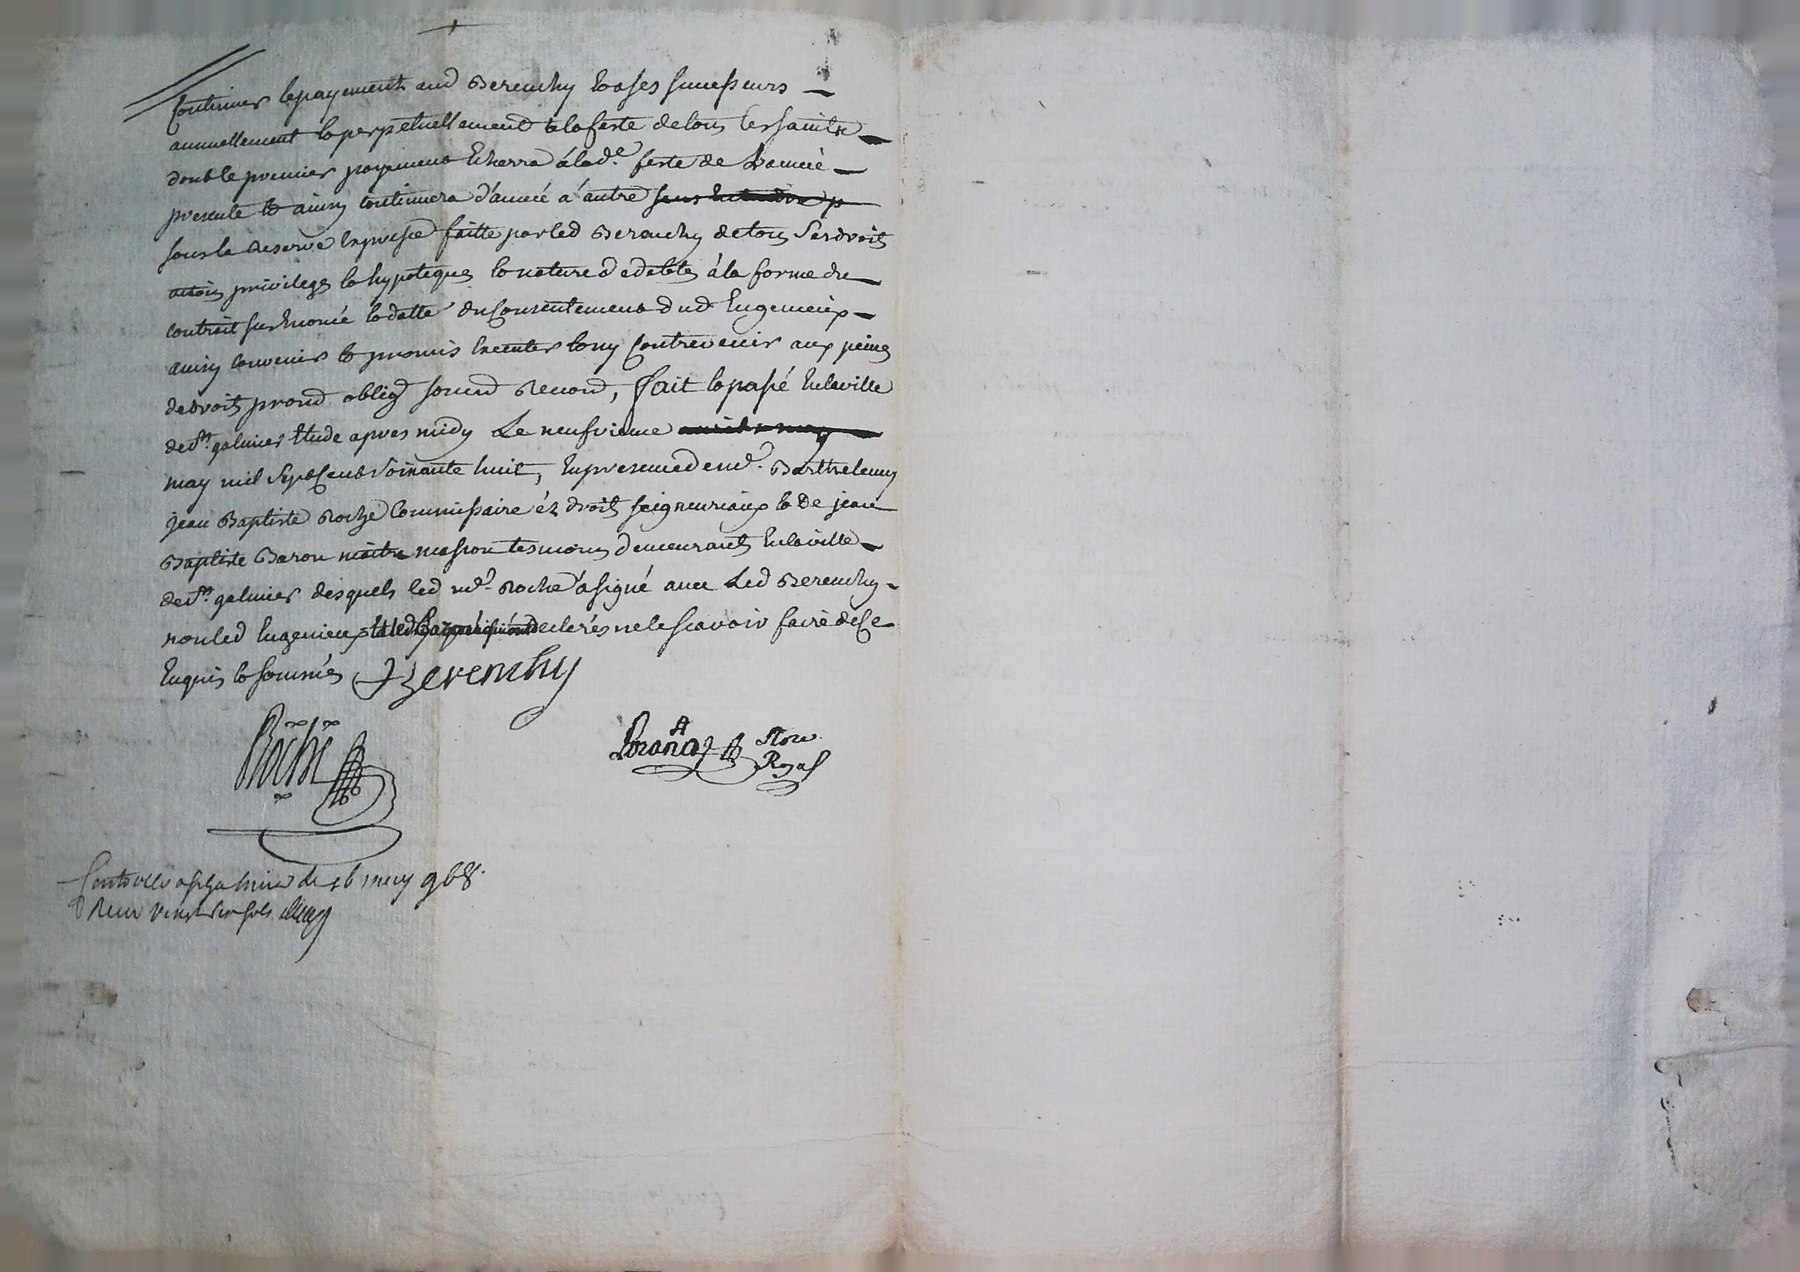 Continuer le payement aud Berenchy et a ses successeurs
annuellement et perpetuellement a la feste de tous les saints
dont le premier payement echerra á lad.e feste de L'année
presente et ainsy continuera d'année á autre
sous la Reserve Expresse faitte par led Berenchy de tous ses droits
actois privileges et hypoteques et nature de debtes á la forme du
contrait susEnoncé et datte du Consentement dud Eugenieux
ainsy convenir et promis Executer et ny Contrevenir aux peines
de droits promd oblig soumd Renond, fait et passé En la ville
de St galmier Etude apres midy Le neufvieme
may mil Sept Cent Soixante huit, En presence de me. Barthelemy
jean Baptiste Roche Commissaire éz droits seigneuriaux et De jean
Baptiste Baron masson tesmoins demeurants En la ville
de St galmier desquels led me. Roche á signé avec Led Berenchy
non led Eugenieux declarés ne le scavoir faire de Ce
Enquis et sommés Berenchy
Roche
Nore
Royal
Controllé a St galmier le 16 may 968.
Recu vingt six sols